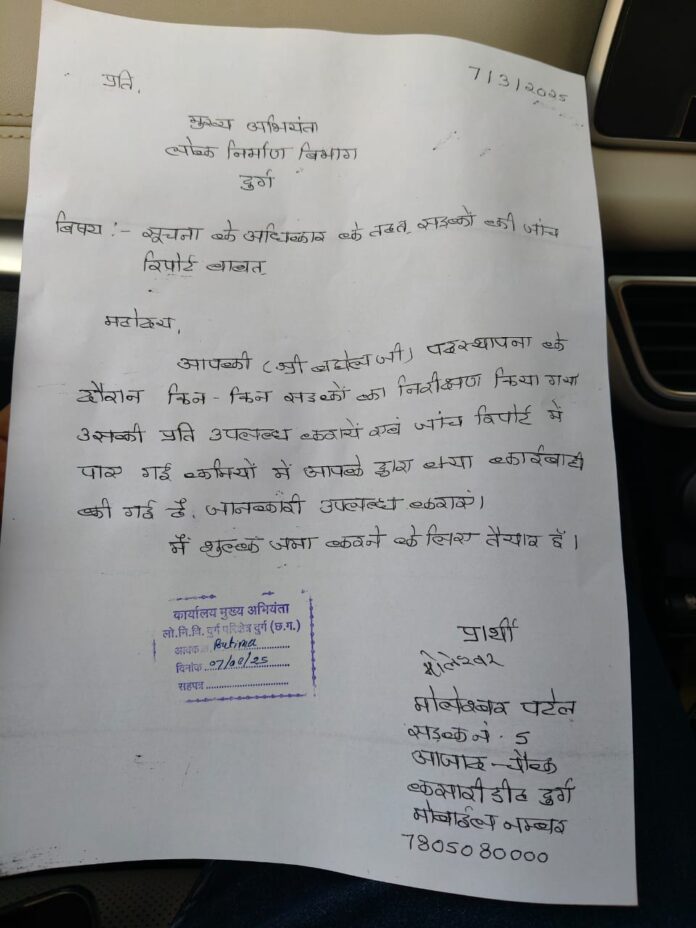 7/3/2025
प्रति,
मुख्य अभियंता
लोक निर्माण विभाग
दुर्ग
विषय :- सूचना के अधिकार के तहत सड़कों की जांच
रिपोर्ट बाबत
महोदय,
आपकी (श्री बघेल जी) पदस्थापना के
दौरान किन-किन सड़कों का निरीक्षण किया गया
उसकी प्रति उपलब्ध करायें एवं जांच रिपोर्ट में
पाए गई कमियों में आपके द्वारा क्या कार्रवाही
की गई है, जानकारी उपलब्ध कराएं।
मैं शुल्क जमा करने के लिए तैयार हूँ।
कार्यालय मुख्य अभियंता
लो.नि.वि. दुर्ग परिक्षेत्र दुर्ग (छ.ग.)
आवक
दिनांक
सहपत्र
प्रार्थी
मोलेश्वर
मोलेश्वर पटेल
सड़क नं. 5
आजाद चौक
कसारीडीह दुर्ग
मोबाईल नम्बर
7805080000